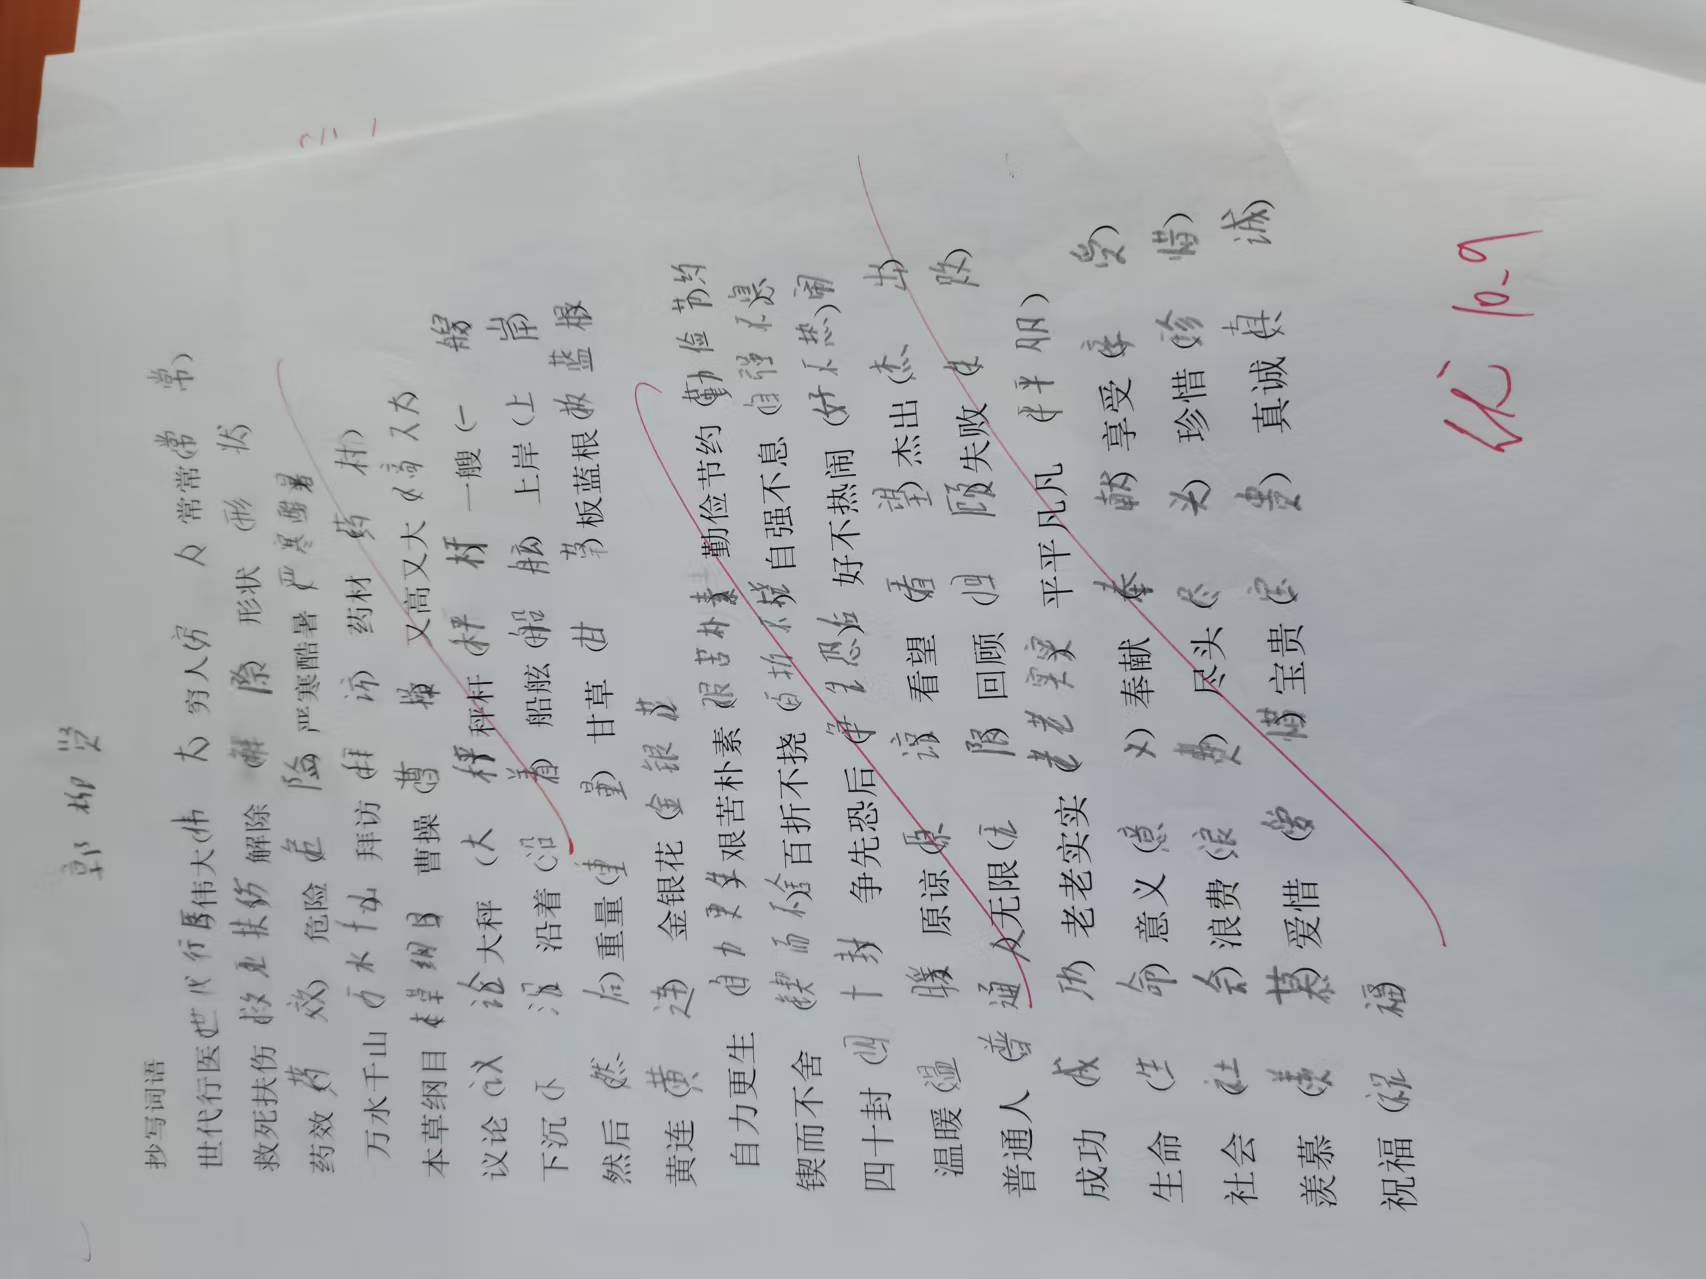 郭柳贤
抄写词语
世代行医(世代行医 伟大(伟 大 穷人(穷 人 常常(常 常)
救死扶伤 救死扶伤 解除 解 除 形状 (形 状
药效 药 效 危险 危 险 严寒酷暑 严寒酷暑
万水千山 (万水千山 拜访 (拜 访 药材 药 材)
本草纲目 本草纲目 曹操 (曹 操 又高又大 (又高又大
议论 (议 论 大秤 (大 秤 秤杆 (秤 杆 一艘 (一 艘
下沉 (下 沉 沿着 (沿 着) 船舷 (船 舷 上岸 (上 岸
然后 (然 后) 重量 (重 量) 甘草 (甘 草) 板蓝根 板蓝根
黄连 (黄 连 金银花 (金银花
自力更生 (自力更生 艰苦朴素 艰苦朴素 勤俭节约 (勤俭节约
锲而不舍 (锲而不舍 百折不挠 (百折不挠 自强不息 (自强不息
四十封 (四十封 争先恐后 (争先恐后 好不热闹 (好不热闹
温暖 (温 暖 原谅 (原 谅 看望 (看 望) 杰出 (杰 出)
普通人 (普通人 无限 (无 限 回顾 (回 顾 失败 (失 败)
成功 成 功) 老老实实 (老老实实 平平凡凡 (平平凡凡)
生命 (生 命) 意义 (意 义) 奉献 奉 献) 享受 (享 受)
社会 (社 会) 浪费 (浪 费) 尽头 (尽 头) 珍惜 (珍 惜)
羡慕 (羡 慕 爱惜 (爱 惜) 宝贵 (宝 贵) 真诚 (真 诚)
祝福 (祝 福
优 10.9